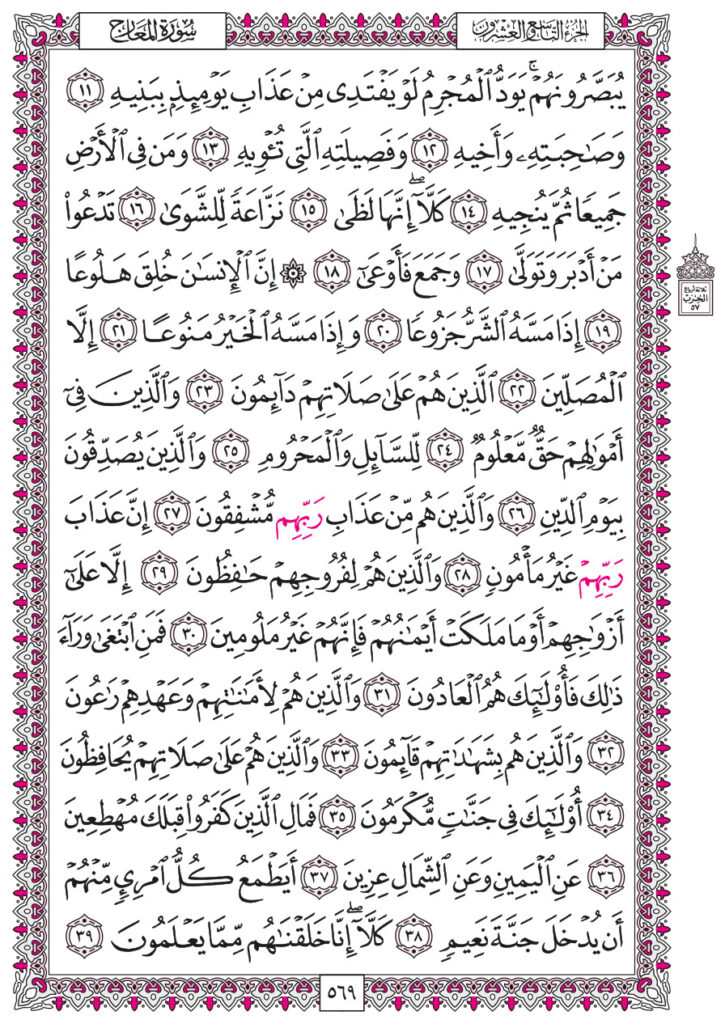 سُورَةُ المَعَارِجِ
الجُزْءُ التَّاسِعُ وَالعِشْرُونَ
يُبَصَّرُونَهُمۡۚ يَوَدُّ ٱلۡمُجۡرِمُ لَوۡ يَفۡتَدِي مِنۡ عَذَابِ يَوۡمِئِذِۭ بِبَنِيهِ ١١
وَصَٰحِبَتِهِۦ وَأَخِيهِ ١٢ وَفَصِيلَتِهِ ٱلَّتِي تُـٔۡوِيهِ ١٣ وَمَن فِي ٱلۡأَرۡضِ
جَمِيعٗا ثُمَّ يُنجِيهِ ١٤ كَلَّآۖ إِنَّهَا لَظَىٰ ١٥ نَزَّاعَةٗ لِّلشَّوَىٰ ١٦ تَدۡعُواْ
مَنۡ أَدۡبَرَ وَتَوَلَّىٰ ١٧ وَجَمَعَ فَأَوۡعَىٰٓ ١٨ ۞ إِنَّ ٱلۡإِنسَٰنَ خُلِقَ هَلُوعًا
١٩ إِذَا مَسَّهُ ٱلشَّرُّ جَزُوعٗا ٢٠ وَإِذَا مَسَّهُ ٱلۡخَيۡرُ مَنُوعًا ٢١ إِلَّا
ٱلۡمُصَلِّينَ ٢٢ ٱلَّذِينَ هُمۡ عَلَىٰ صَلَاتِهِمۡ دَآئِمُونَ ٢٣ وَٱلَّذِينَ فِيٓ
أَمۡوَٰلِهِمۡ حَقّٞ مَّعۡلُومٞ ٢٤ لِّلسَّآئِلِ وَٱلۡمَحۡرُومِ ٢٥ وَٱلَّذِينَ يُصَدِّقُونَ
بِيَوۡمِ ٱلدِّينِ ٢٦ وَٱلَّذِينَ هُم مِّنۡ عَذَابِ رَبِّهِم مُّشۡفِقُونَ ٢٧ إِنَّ عَذَابَ
رَبِّهِمۡ غَيۡرُ مَأۡمُونٖ ٢٨ وَٱلَّذِينَ هُمۡ لِفُرُوجِهِمۡ حَٰفِظُونَ ٢٩ إِلَّا عَلَىٰٓ
أَزۡوَٰجِهِمۡ أَوۡ مَا مَلَكَتۡ أَيۡمَٰنُهُمۡ فَإِنَّهُمۡ غَيۡرُ مَلُومِينَ ٣٠ فَمَنِ ٱبۡتَغَىٰ وَرَآءَ
ذَٰلِكَ فَأُوْلَٰٓئِكَ هُمُ ٱلۡعَادُونَ ٣١ وَٱلَّذِينَ هُمۡ لِأَمَٰنَٰتِهِمۡ وَعَهۡدِهِمۡ رَٰعُونَ
٣٢ وَٱلَّذِينَ هُم بِشَهَٰدَٰتِهِمۡ قَآئِمُونَ ٣٣ وَٱلَّذِينَ هُمۡ عَلَىٰ صَلَاتِهِمۡ يُحَافِظُونَ
٣٤ أُوْلَٰٓئِكَ فِي جَنَّٰتٖ مُّكۡرَمُونَ ٣٥ فَمَالِ ٱلَّذِينَ كَفَرُواْ قِبَلَكَ مُهۡطِعِينَ
٣٦ عَنِ ٱلۡيَمِينِ وَعَنِ ٱلشِّمَالِ عِزِينَ ٣٧ أَيَطۡمَعُ كُلُّ ٱمۡرِيٕٖ مِّنۡهُمۡ
أَن يُدۡخَلَ جَنَّةَ نَعِيمٖ ٣٨ كَلَّآۖ إِنَّا خَلَقۡنَٰهُم مِّمَّا يَعۡلَمُونَ ٣٩
ثلاثة أرباع
الحزب
٥٧
٥٦٩